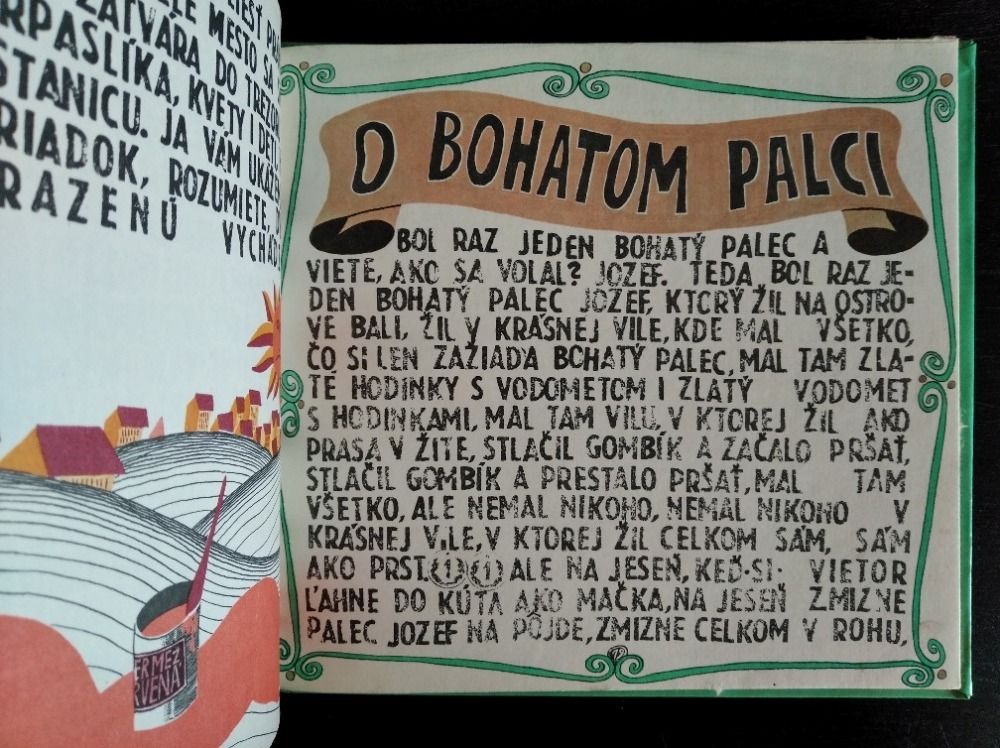 MESTO SA
ZATVÁRA DO
RPASLÍKA, KVETY I DETI
STANICU. JA VÁM UKÁŽEM
RIADOK, ROZUMIETE,
RAZENÚ VYCHÁD
ERMEZ
RVENÁ
O BOHATOM PALCI
BOL RAZ JEDEN BOHATÝ PALEC A
VIETE, AKO SA VOLAL? JOZEF. TEDA BOL RAZ JE-
DEN BOHATÝ PALEC JOZEF, KTORÝ ŽIL NA OSTRO-
VE BALI, ŽIL V KRÁSNEJ VILE, KDE MAL VŠETKO,
ČO SI LEN ZAŽIADA BOHATÝ PALEC, MAL TAM ZLA-
TÉ HODINKY S VODOMETOM I ZLATÝ VODOMET
S HODINKAMI, MAL TAM VILU, V KTOREJ ŽIL AKO
PRASA V ŽITE, STLAČIL GOMBÍK A ZAČALO PRŠAŤ,
STLAČIL GOMBÍK A PRESTALO PRŠAŤ, MAL TAM
VŠETKO, ALE NEMAL NIKOHO, NEMAL NIKOHO V
KRÁSNEJ VILE, V KTOREJ ŽIL CELKOM SÁM, SÁM
AKO PRST. ALE NA JESEŇ, KEĎ SI VIETOR
ĽAHNE DO KÚTA AKO MAČKA, NA JESEŇ ZMIZNE
PALEC JOZEF NA PÔJDE, ZMIZNE CELKOM V ROHU,